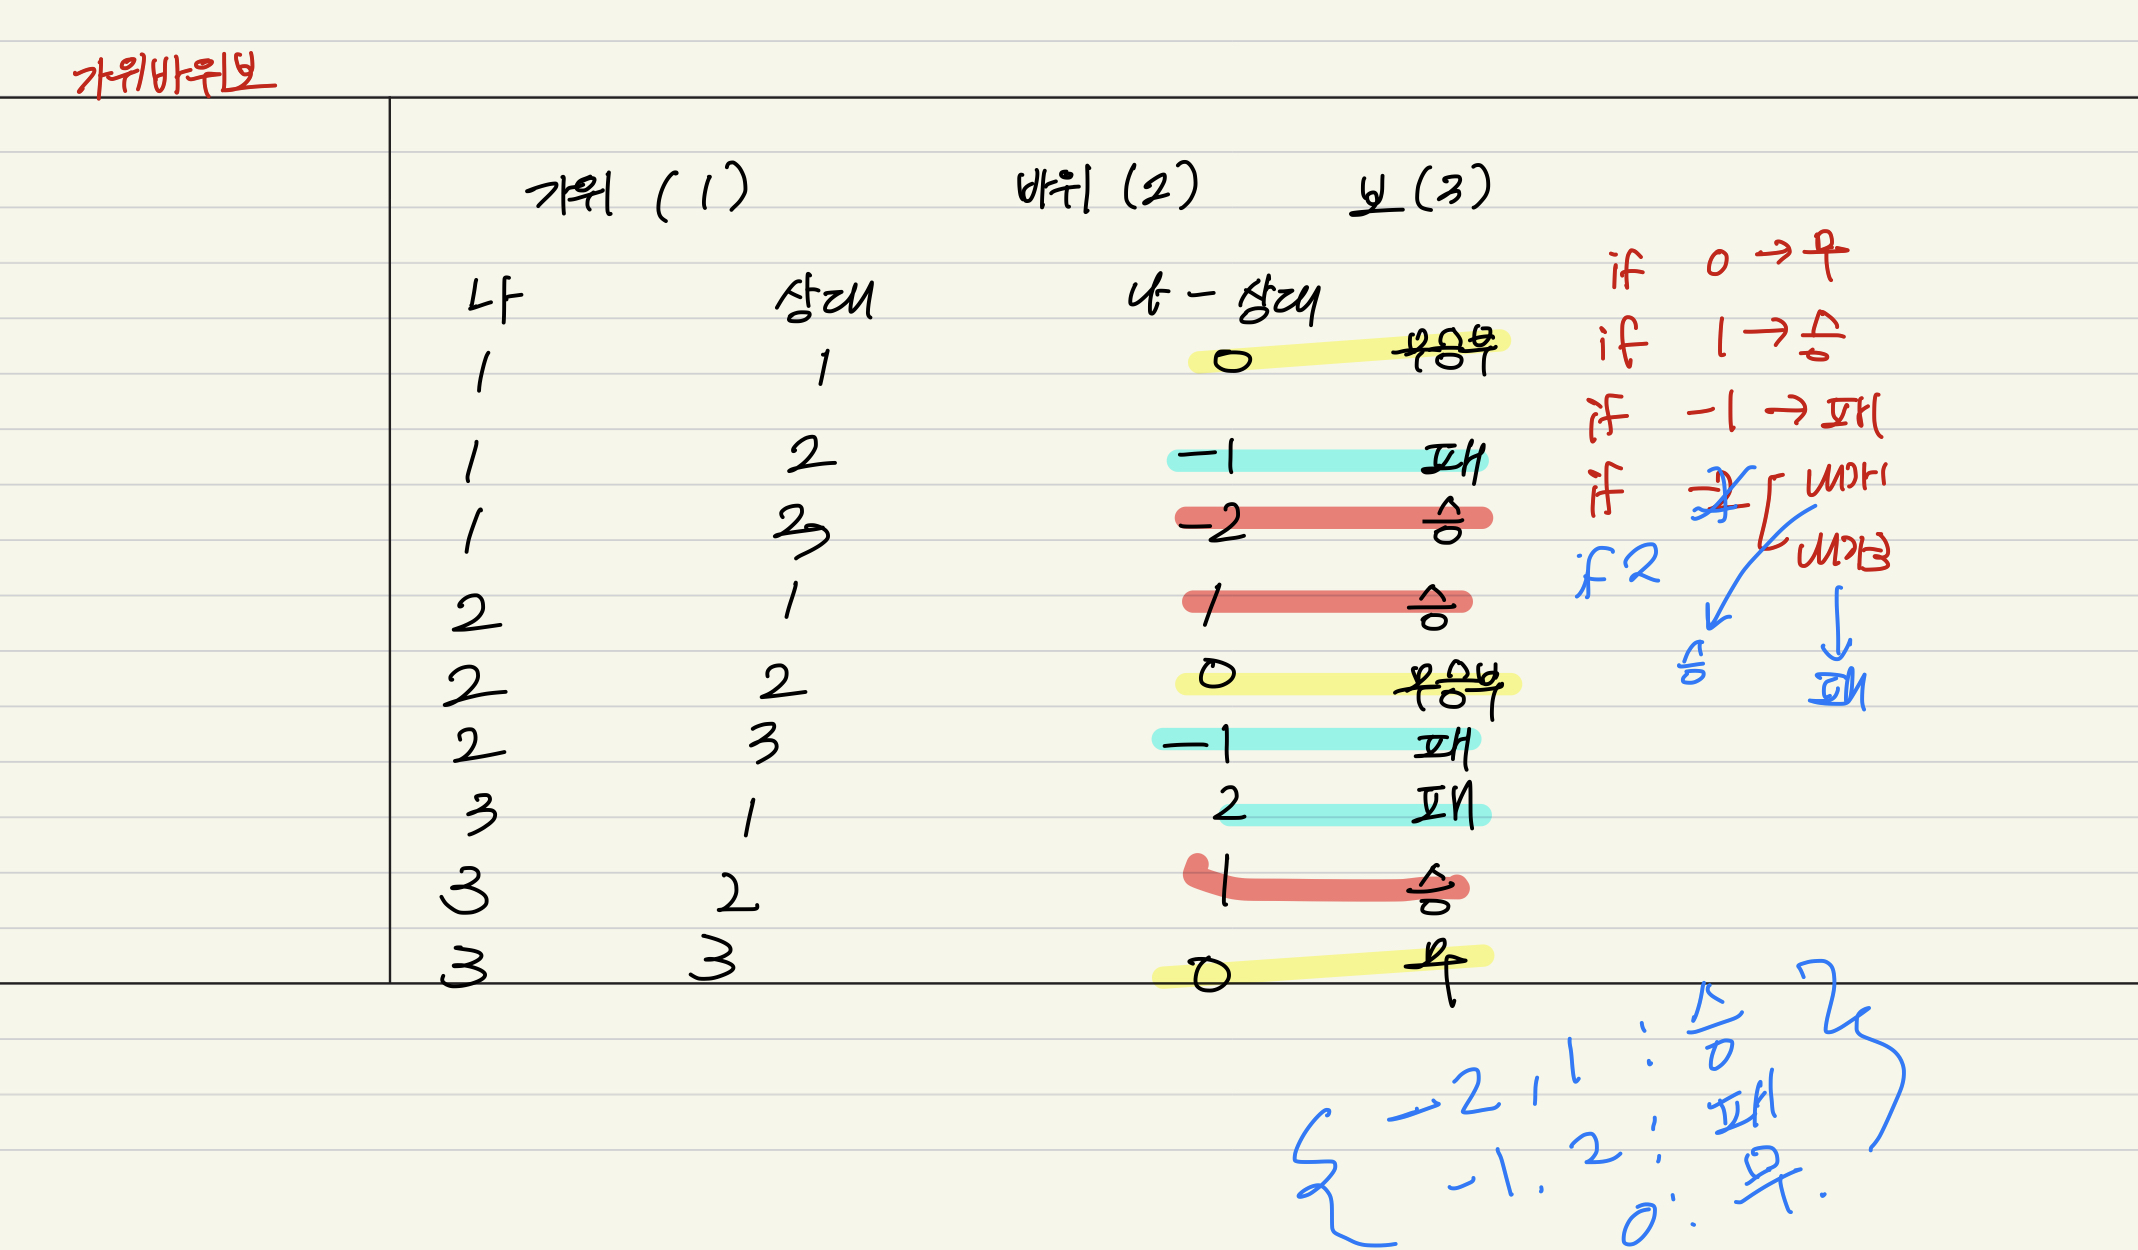 가위바위보
가위 (1) 바위 (2) 보 (3)
나 상대 나 - 상대
1 1 0 무승부
1 2 -1 패
1 3 -2 승
2 1 1 승
2 2 0 무승부
2 3 -1 패
3 1 2 패
3 2 1 승
3 3 0 무
if 0 → 무
if 1 → 승
if -1 → 패
if
if 2
승
패
-2, 1 : 승
-1. 2 : 패
0 : 무.